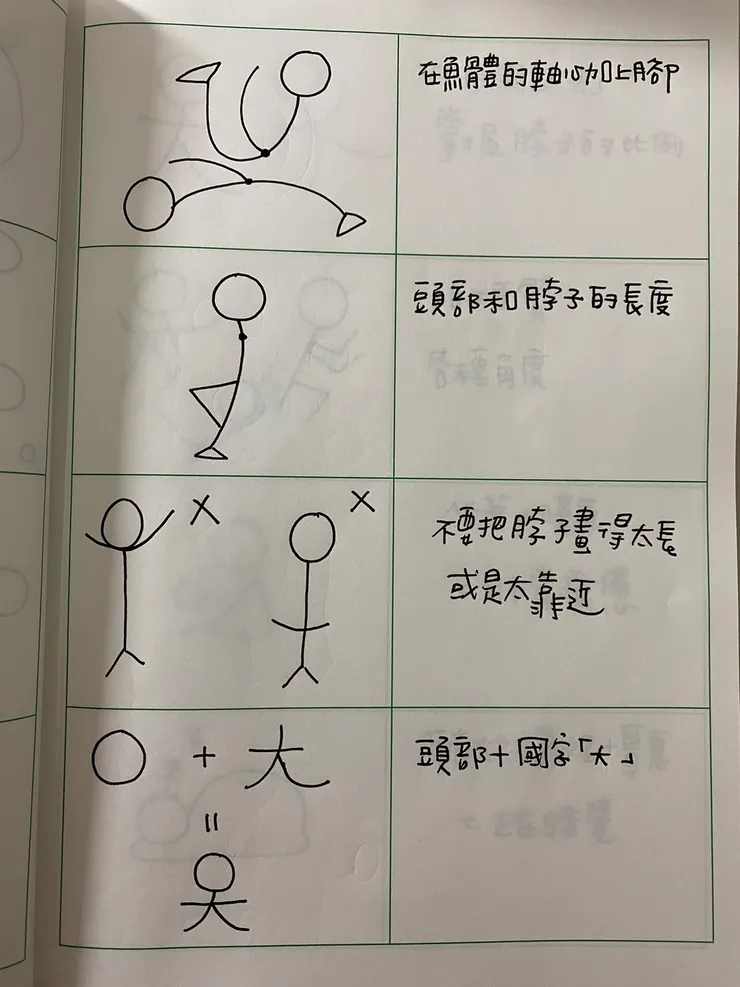 在魚體的軸心加上腳
頭部和脖子的長度
×
×
不要把脖子畫得太長
或是太靠近
+ 大
=
頭部+國字「大」